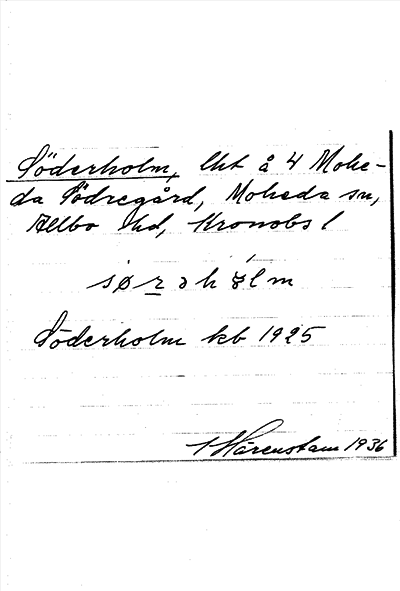 Söderholm, lht å 4 Mohe-
da Södregård, Moheda sn,
Allbo hd, Kronobs l
sø̱rəhólm
Söderholm kb 1925
Härenstam 1936